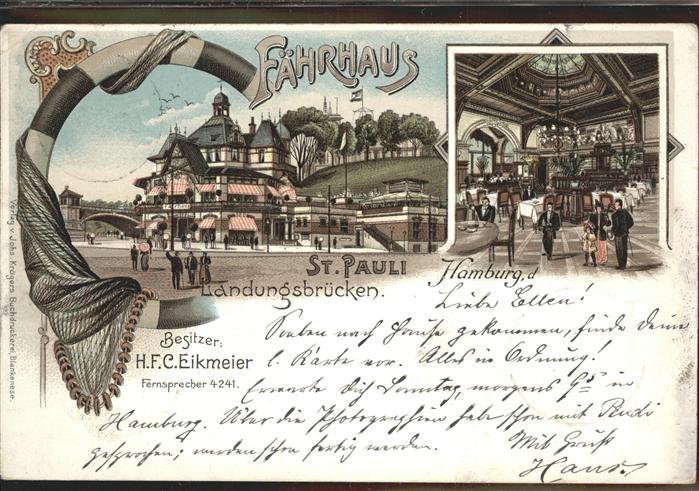 FÄHRHAUS
ST. PAULI
Landungsbrücken.
Besitzer:
H.F.C. Eikmeier
Fernsprecher 4241.
Verlag v. Johs. Krögers Buchdruckerei, Blankenese.
Hamburg, d
Liebe Ellen!
Soeben nach Hause gekommen, finde deine
l. Karte vor. Alles in Ordnung!
Erwarte dich Sonntag, morgens 9⁰⁵ in
Hamburg. Über die Photographien habe schon mit
gesprochen; werden schon fertig werden.
Mit Gruß
Hans.